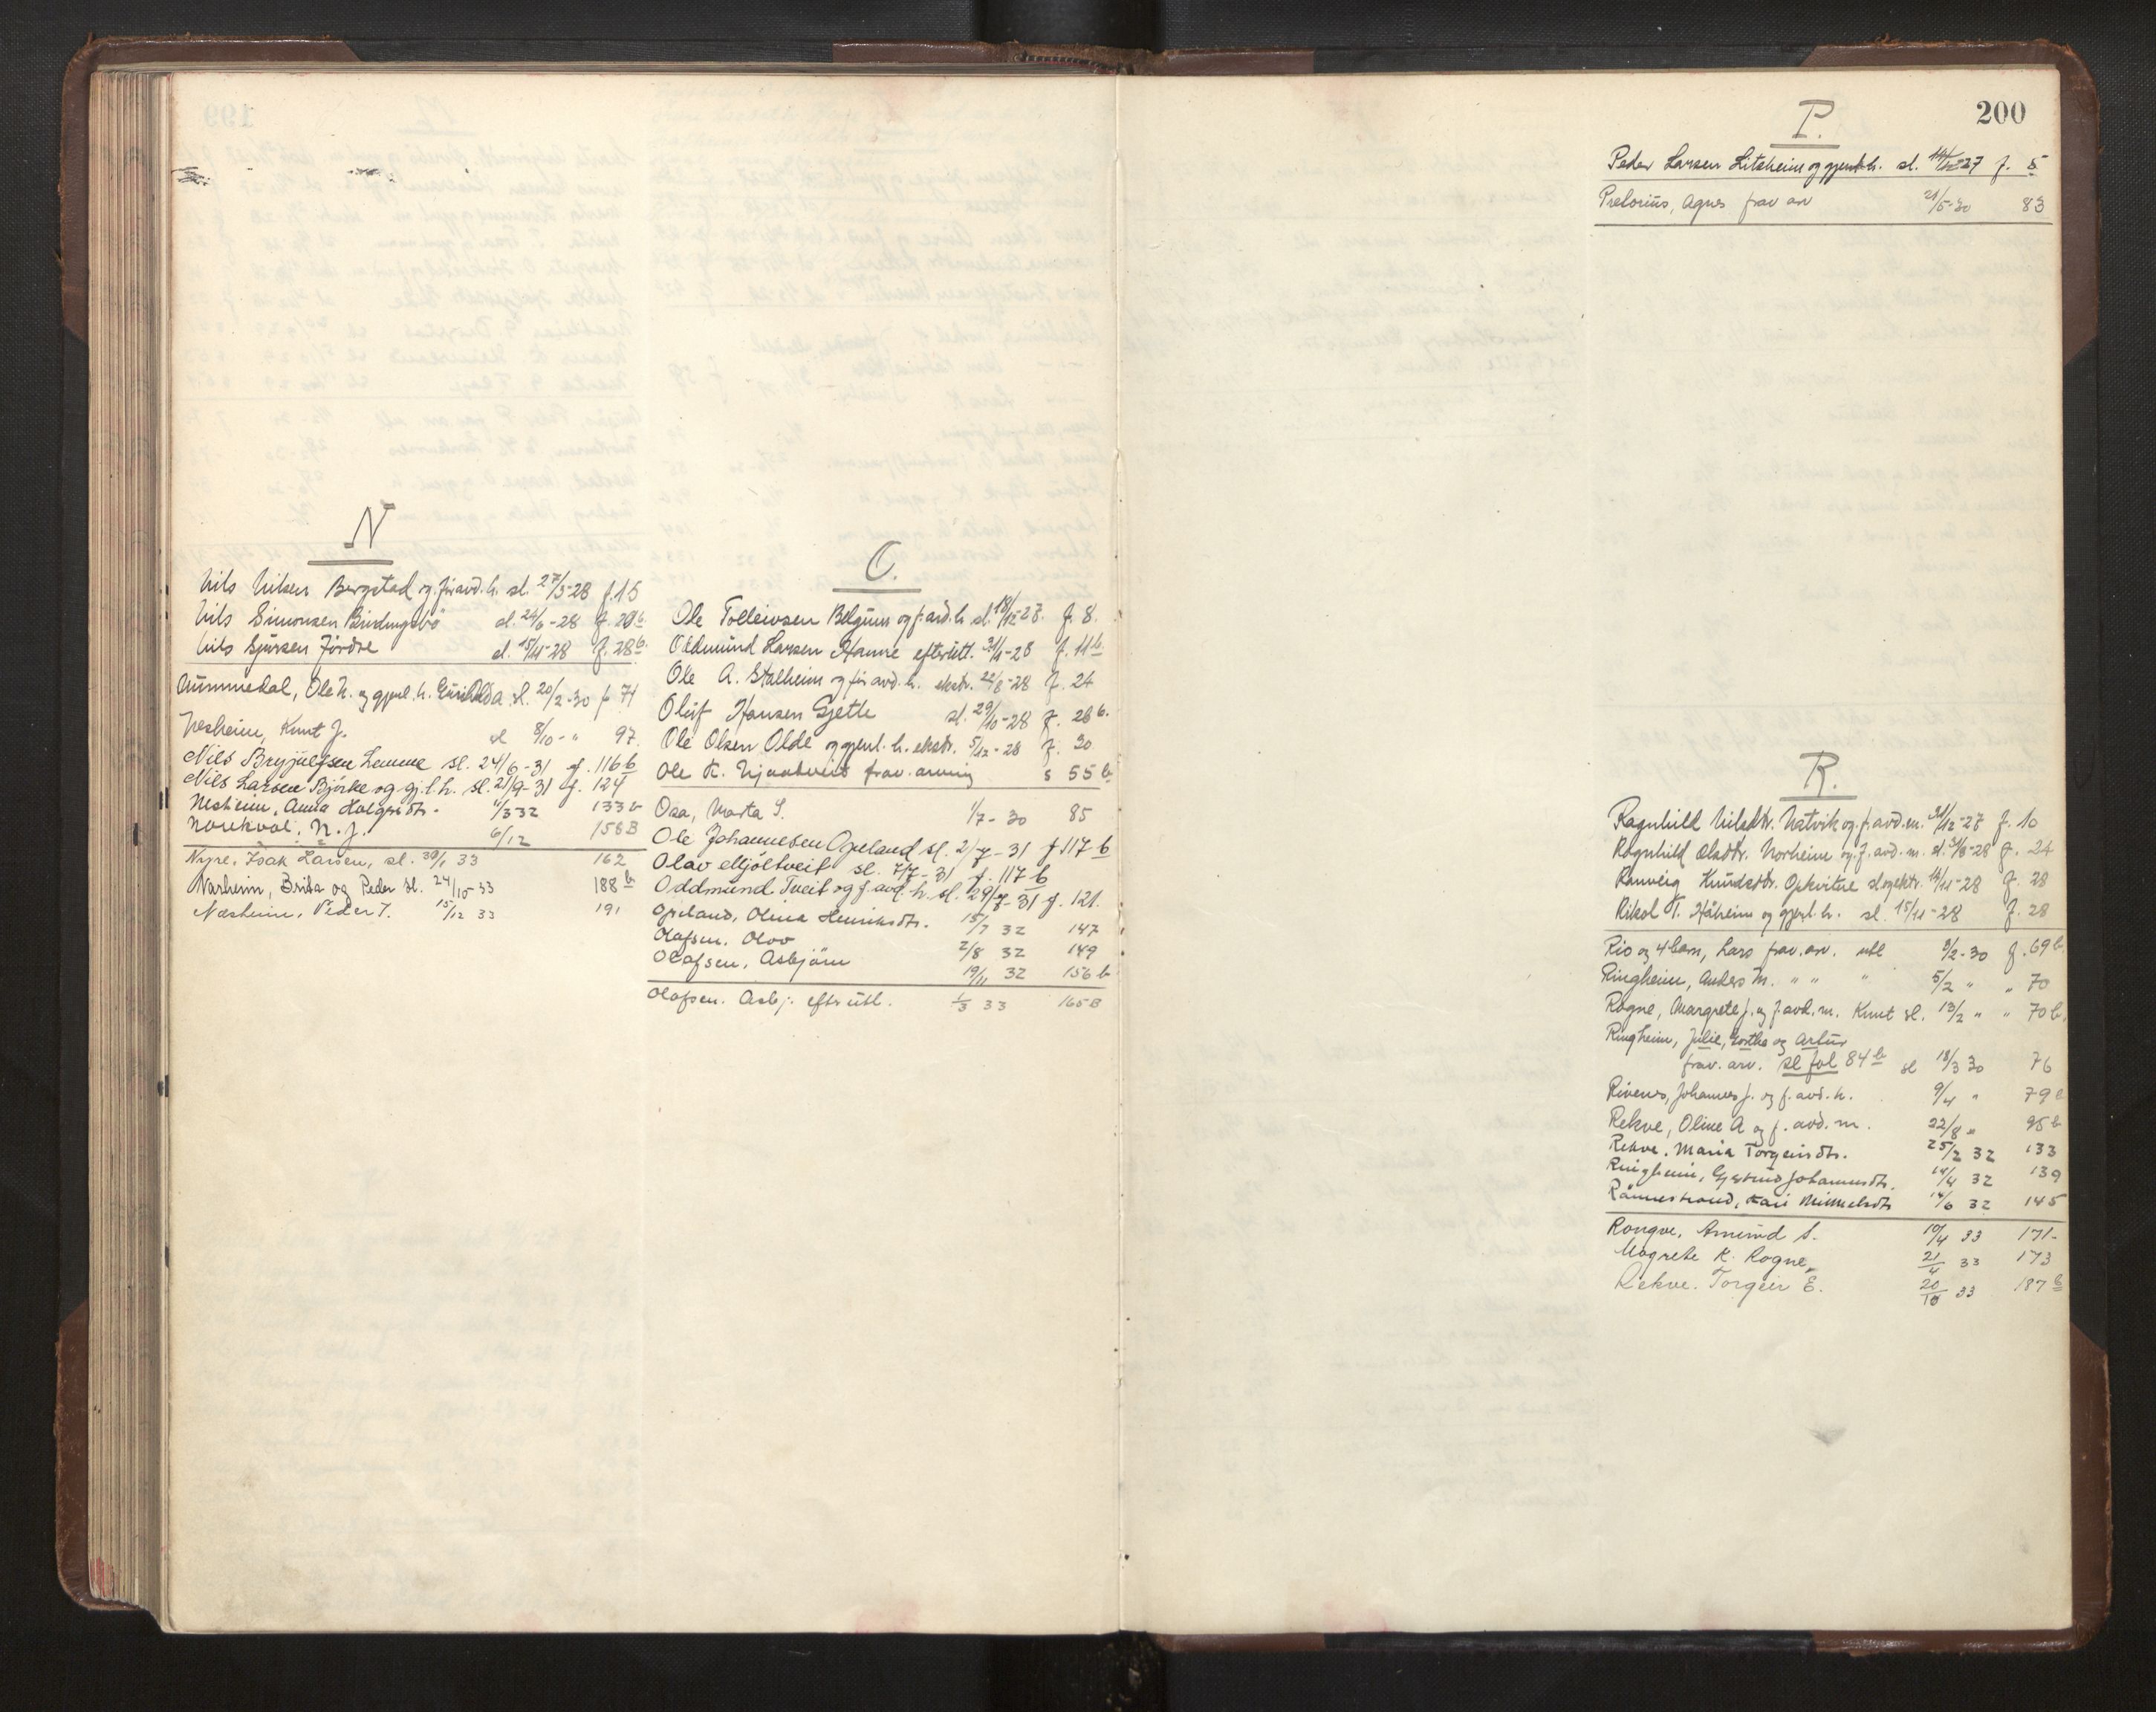 N
Nils Nilsen Bergstad og föravd. h. sl. 27/3-28 f. 15
Nils Simonsen sl. 24/6-28 f. 20b
Nils Sjursen Jördre sl. 15/11-28 f. 28b
Nummedal, Ole N. og gjenl. h. sl. 20/2-30 f 71
Nesheim, Knut J. sl 8/10 - " 97
Nils Brynjulfsen Lemme sl. 24/6-31 f. 116b
Nils Larsen Björke og gj. l. h. sl. 21/9-31 f. 124
Nesheim, Anna Holgeirsdtr. 11/3 32 133b
N. J. 6/12 158B
Nyre, Isak Larsen, sl. 30/1 33 162
Narheim, Brita og Peder sl. 24/10-33 188b
Næsheim, Peder J. 15/12 33 191
O.
Ole Tolleivsen Bolgum og f. avd. h sl. 18/12-27. f. 8.
Oddmund Larsen Hanne efterutl. 31/1-28 f. 11b
Ole A. Stalheim og för avd. h. ekstr. 22/8-28 f. 24
Oluf Hansen Gjette sl. 29/10-28 f. 26b.
Ole Olsen Olde og gjenl. h. ekstr. 5/12-28 f. 30
Ole K. frav. arving s 55b
Osa, Marta S. 1/7-30 85
Ole Johannesen Opeland sl. 2/7-31 f 117b
Olav Mjöltveit sl. 7/7-31 f. 117b
Oddmund Tveit og f. avd. h. sl. 29/7-31 f. 121.
Opeland, Olina Henriksdtr. 15/7 32 147
Olafsen, Olov 2/8 32 149
Olafsen, Asbjörn 19/11 32 156b
Olafsen. Asbj. eftrutl. 1/3 33 165B
200
P.
Peder Larsen Litsheim og gjenl. h. sl. 14/12-27 f. 5
Pretorius, Agnes frav arv 21/5-30 83
R.
Ragnhild Nilsdtr. Natvik og f. avd. m. 31/12-27 f. 10
Ragnhild Olsdtr. Norheim og f. avd. m. sl. 31/8-28 f. 24
Ranveig Knudsdtr. Opkvitne sl og ektr. 14/11-28 f. 28
Rikol T. Håheim og gjenl. h. sl. 15/11-28 f. 28
Rio og 4 barn, Lars frav. arv. utl 3/2-30 f. 69b
Ringheim, Anders M. " " " 5/2 " " 70
Rogne, Margrete J. og f. avd. m. Knut sl. 13/2 " " 70b.
Ringheim, Julie, Gertha og Artur
frav. arv. sl fol 84b sl 18/3 30 76
Rivenes, Johannes J. og f. avd. h. 9/4 " 79b
Rekve, Oline A og f. avd. m. 22/8 " 95b
Rekve. Maria Torgeirsdtr. 25/2 32 133
Ringheim, Gjertrud Johannesdtr. 14/4 32 139
Rånnestrand, Kari 14/6 32 145
Rongve, Amund S. 10/4 33 171-
Magrete K. Rogne, 21/4 33 173
Rekve. Torgeir E. 20/10 33 187b